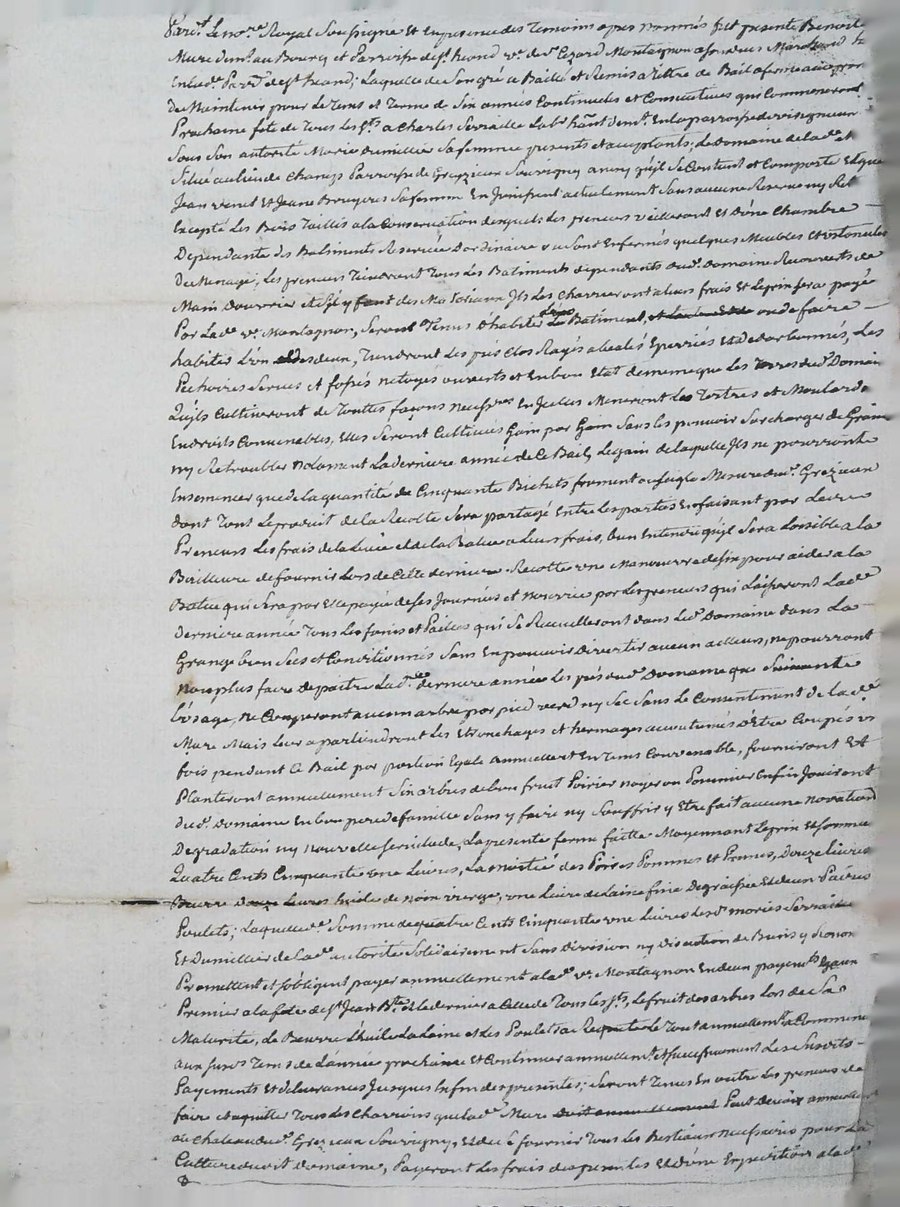 Pard.t Le no.re Royal Soussigné Et En presence des Temoins apres nommés fut presente Benoite
Mure dem.t au Bourg et Parroisse de s.t heand v.e de s.r Cezard Montagnon a son vivant Marchand
En lad.e Parr.e de s.t heand; Laquelle de Son gré a Baillé et Remis a titre de Bail a ferme
de Maintenir pour le Tems et Terme de Six années Continuelles et Consecutives qui Commenceront
Prochaine fete de Tous les s.ts a Charles Serraille Lab.r hant dem.t En la parroisse de
Sous Son autorité Marie dumillier Sa femme presents et acceptants; Le Domaine de lad.e
Situé au lieu de Champs Parroisse de Grezieu Souvigny ainsy qu'il se Contient et Comporte Et que
Jean venet Et Jeane Bruyere Sa femme En Jouissent actuellement Sans aucune Reserve ny
Excepté Les Bois Taillis a la Conservation desquels les preneurs veilleront Et d'une Chambre
Dependante des Batiments Reservée D'ordinaire ou Sont Enfermés quelques Meubles et ustensiles
De Menage; Les preneurs Tiendront Tous Les Batiments dependants dud.t Domaine Recouverts de
Main d'ouvrier et S'il y faut des Materiaux Ils Les Charrieront a leurs frais Et le prix sera payé
Par Lad.e v.e Montagnon, Seront Tenus d'habiter Les Batiment, ou de faire
habiter L'un d'eux, Tiendront Les prés Clos Rayés
Pechoires Serves et fossés netoyés ouverts et En bon Etat de meme que les Terres dud.t Domaine
Qu'ils Cultiveront de Toutes façons necess.res En Icelles Meneront Les Tertres et Moulard
Endroits Convenables, Elles Seront Cultivées Gain par Gain Sans les pouvoir Surcharger de Grain
ny Retroubler notament La derniere année de Ce Bail, Le gain de laquelle Ils ne pourront
Ensemencer que de la quantité de Cinquante Bichets froment ou seigle Mesure dud.t Grezieu
dont Tout Le produit de la Recolte Sera partagé Entre Les parties En faisant par Les
Preneurs Les frais de la Levée et de la Batue a Leurs frais, bien Entendu qu'il Sera Loisible a la
Bailleure de fournir Lors de Cette derniere Recolte une Manoeuvre pour aider a la
Batue qui Sera par Elle payée de Ses Journées et nourrie par Les preneurs qui Laisseront Lad.e
derniere année Tous Les foins et Pailles qui Se Recuelleront dans Led.t Domaine dans La
Grange bien Secs et Conditionnés Sans En pouvoir Divertir aucun ailleurs, ne pourront
non plus faire depaitre Lad.te derniere année Les prés dud.t Domaine que Suivant
L'usage, ne Couperont aucun arbre par pied verd ny Sec Sans Le Consentement de lad.e
Mure Mais Leur apartiendront Les Etronchages et hermages accoutumés d'Etre Coupés
fois pendant Ce Bail par portion Egale Annuellem.t En Tems Convenable, fourniront Et
Planteront annuellement Six arbres de bon fruit Poirier noyer ou Pommier Enfin Jouiront
dud.t Domaine En bon pere de famille Sans y faire ny Souffrir y Etre fait aucune novation
Degradation ny nouvelle Servitude, La presente ferme faitte Moyennant Le prix et Somme
Quatre Cents Cinquante une Livres, La moitié des Poires Pommes et Prunes, Douze Livres
Beurre Douze Livres huile de noix vierge, une Livre de Laine fine Degraissée Et deux Paires
Poulets; Laquelle Somme de quatre Cents Cinquante une Livres Les d.ts mariés Serraille
Et Dumillier de Lad.e autorité Solidairement Sans Division ny Discution de Biens y
Promettent et s'obligent payer annuellement a lad.e v.e Montagnon En deux payem.ts Egaux
Premier a la fete de s.t Jean B.te Et le dernier a Celle de Tous les s.ts, Le fruit des arbres Lors de Sa
Maturité, Le Beurre L'huile La Laine et Les Poulets a Requete Le Tout annuellem.t a Commencer
aux susd.ts Tems de L'année prochaine Et Continuer annuellem.t et successivement Les Susdits
Payements et delivrances Jusques la fin des presentes; Seront Tenus En outre Les preneurs de
faire et aquitter Tous les Charrois que lad.e Mure doit annuellement Peut Devoir annuellement
au Chateau dud.t Grezieu Souvigny, Et de Se fournir Tous Les Bestiaux necessaires pour La
Culture dudit Domaine, Payeront Les frais des presentes Et d'une Expedition a lad.e